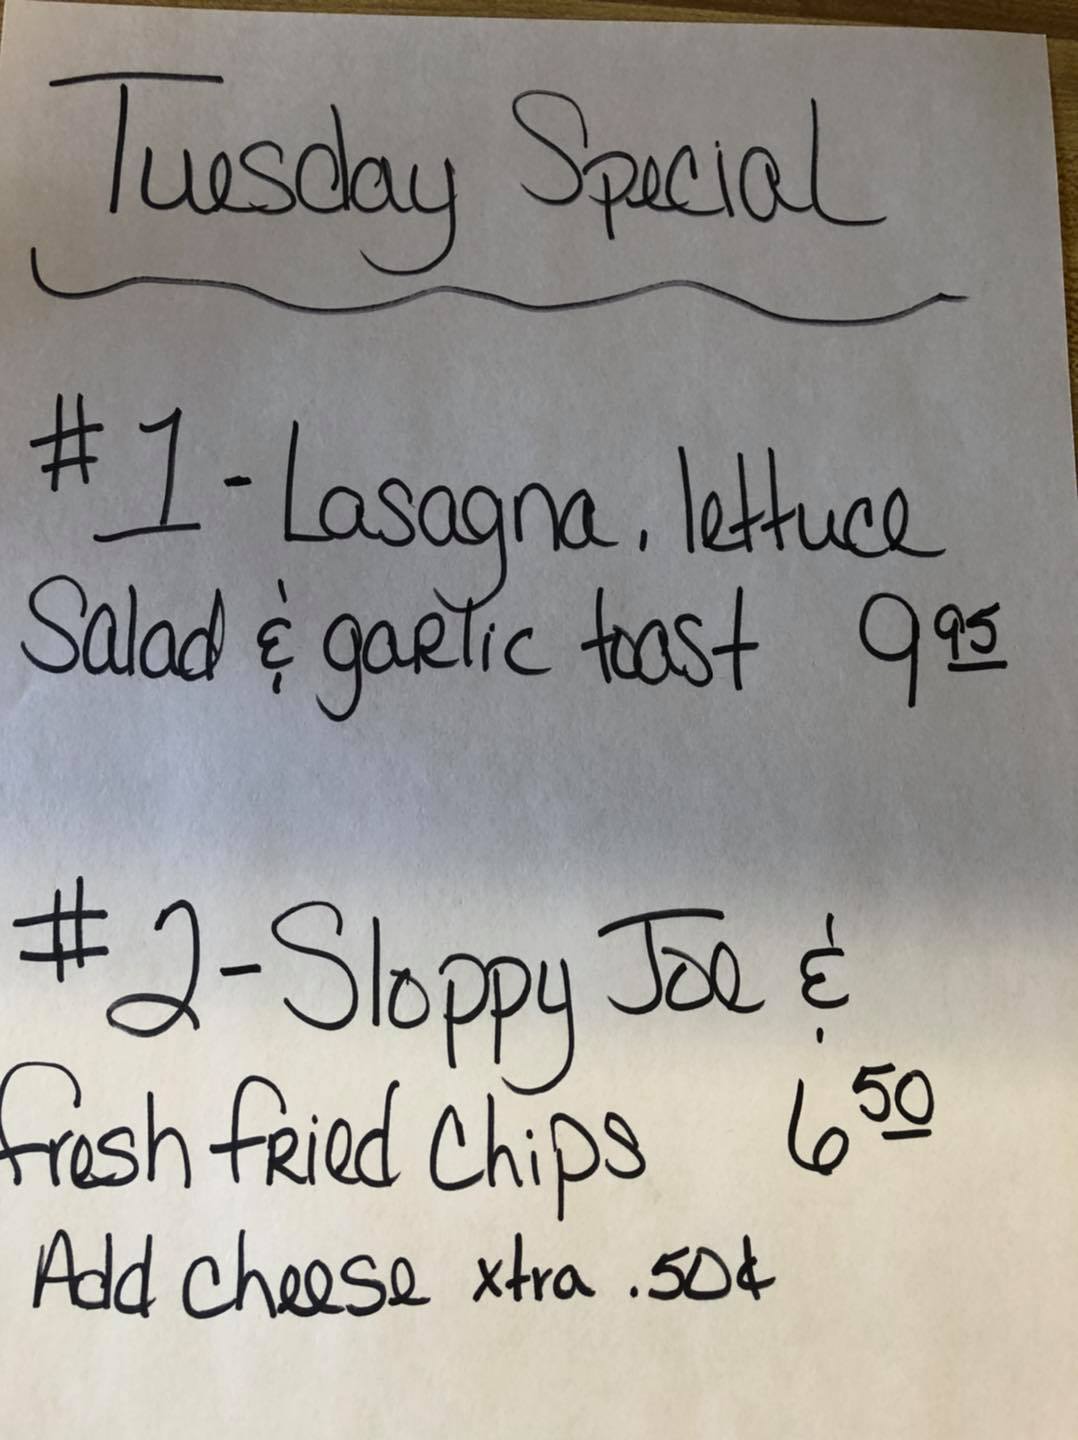 Tuesday Special
#1 - Lasagna, lettuce
Salad & garlic toast 9 95
#2 - Sloppy Joe &
fresh fried chips 6 50
Add cheese xtra .50¢